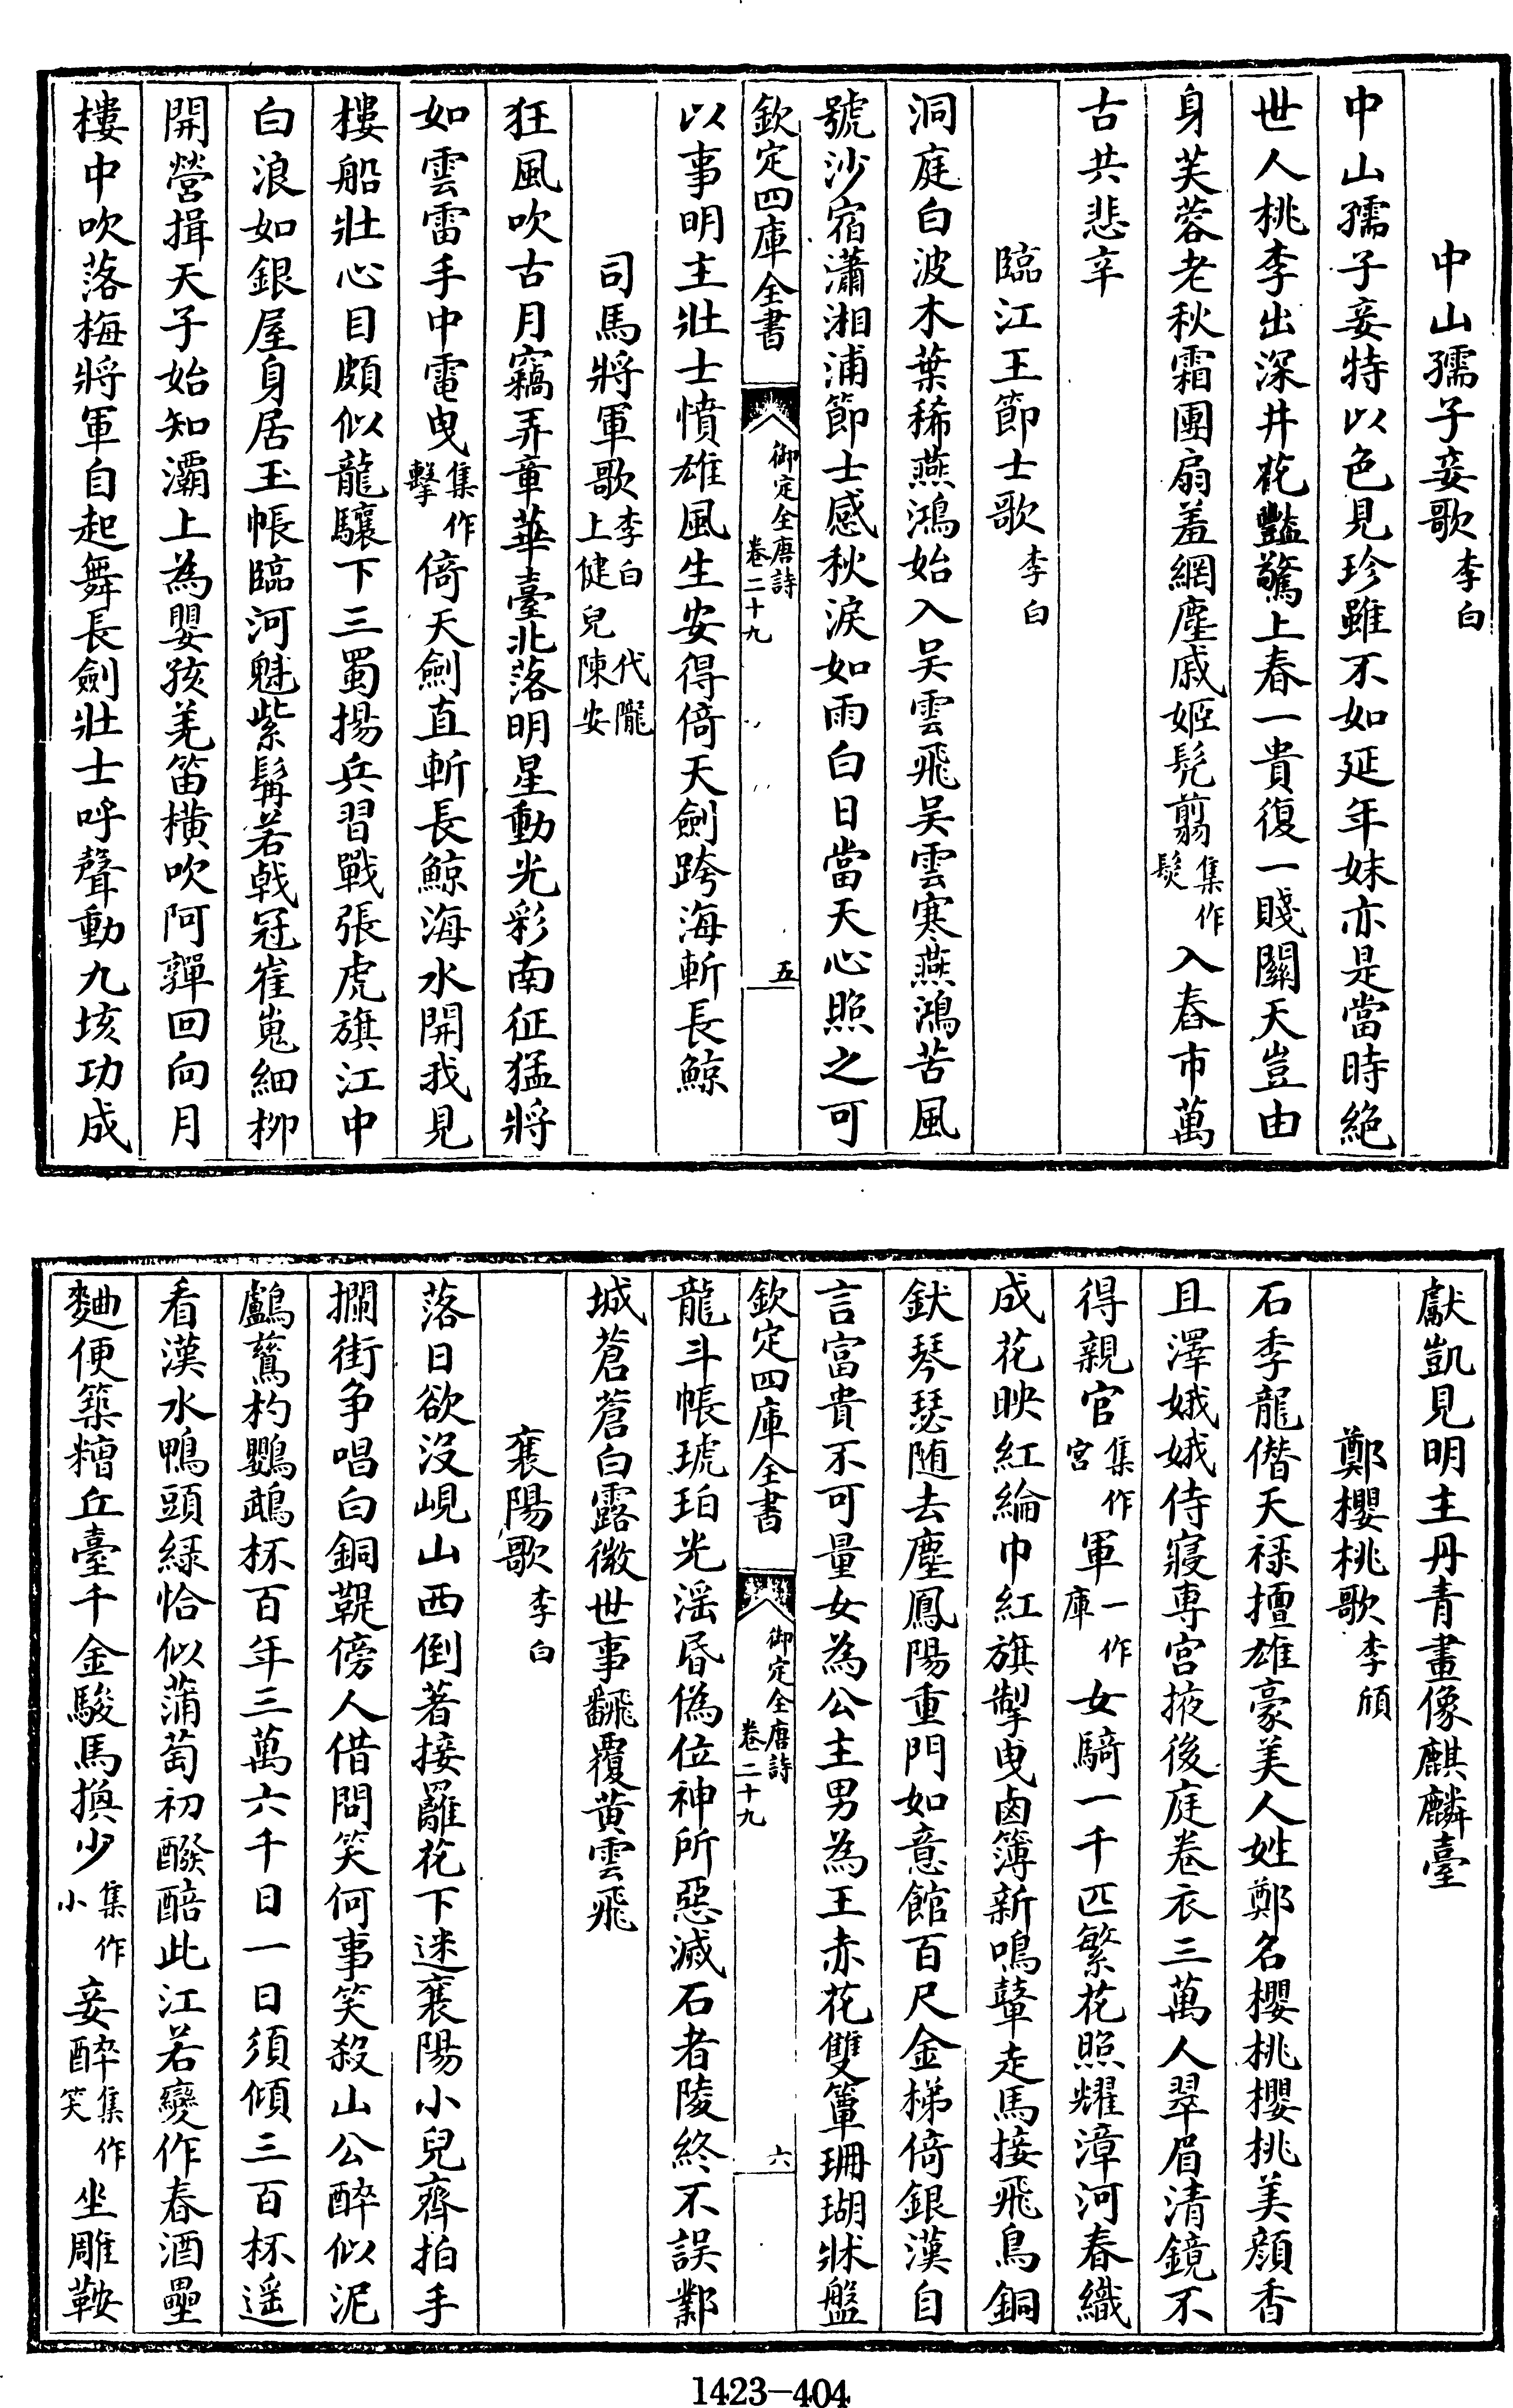 中山孺子妾歌李白
中山孺子妾特以色見珍雖不如延年妹亦是當時絶
世人桃李出深井花豔驚上春一貴復一賤關天豈由
身芙蓉老秋霜團扇羞網塵戚姬髠翦集作髮入舂市萬
古共悲辛
臨江王節士歌李白
洞庭白波木葉稀燕鴻始入吳雲飛吳雲寒燕鴻苦風
號沙宿瀟湘浦節士感秋淚如雨白日當天心照之可
欽定四庫全書 御定全唐詩卷二十九 五
以事明主壯士憤雄風生安得倚天劍跨海斬長鯨
司馬將軍歌李白代隴上健兒陳安
狂風吹古月竊弄章華臺北落明星動光彩南征猛將
如雲雷手中電曳集作擊倚天劍直斬長鯨海水開我見
樓船壯心目頗似龍驤下三蜀揚兵習戰張虎旗江中
白浪如銀屋身居玉帳臨河魁紫髯若戟冠崔嵬細柳
開營揖天子始知灞上為嬰孩羌笛橫吹阿嚲回向月
樓中吹落梅將軍自起舞長劍壯士呼聲動九垓功成
獻凱見明主丹青畫像麒麟臺
鄭櫻桃歌李頎
石季龍僭天祿擅雄豪美人姓鄭名櫻桃櫻桃美顔香
且澤娥娥侍寢専宮掖後庭卷衣三萬人翠眉清鏡不
得親官集作宮軍一作庫女騎一千匹繁花照耀漳河春織
成花映紅綸巾紅旗掣曳鹵簿新鳴鼙走馬接飛鳥銅
鈇琴瑟随去塵鳳陽重門如意館百尺金梯倚銀漢自
言富貴不可量女為公主男為王赤花雙簟珊瑚牀盤
欽定四庫全書 御定全唐詩卷二十九 六
龍斗帳琥珀光滛昏偽位神所惡滅石者陵終不誤鄴
城蒼蒼白露微世事飜覆黄雲飛
襄陽歌李白
落日欲没峴山西倒著接䍦花下迷襄陽小兒齊拍手
攔街争唱白銅鞮傍人借問笑何事笑殺山公醉似泥
鸕鷀杓鸚鵡杯百年三萬六千日一日須傾三百杯遥
看漢水鴨頭緑恰似蒲萄初醱醅此江若變作春酒壘
麯便築糟丘臺千金駿馬換少集作小妾醉集作笑坐雕鞍
1423-404